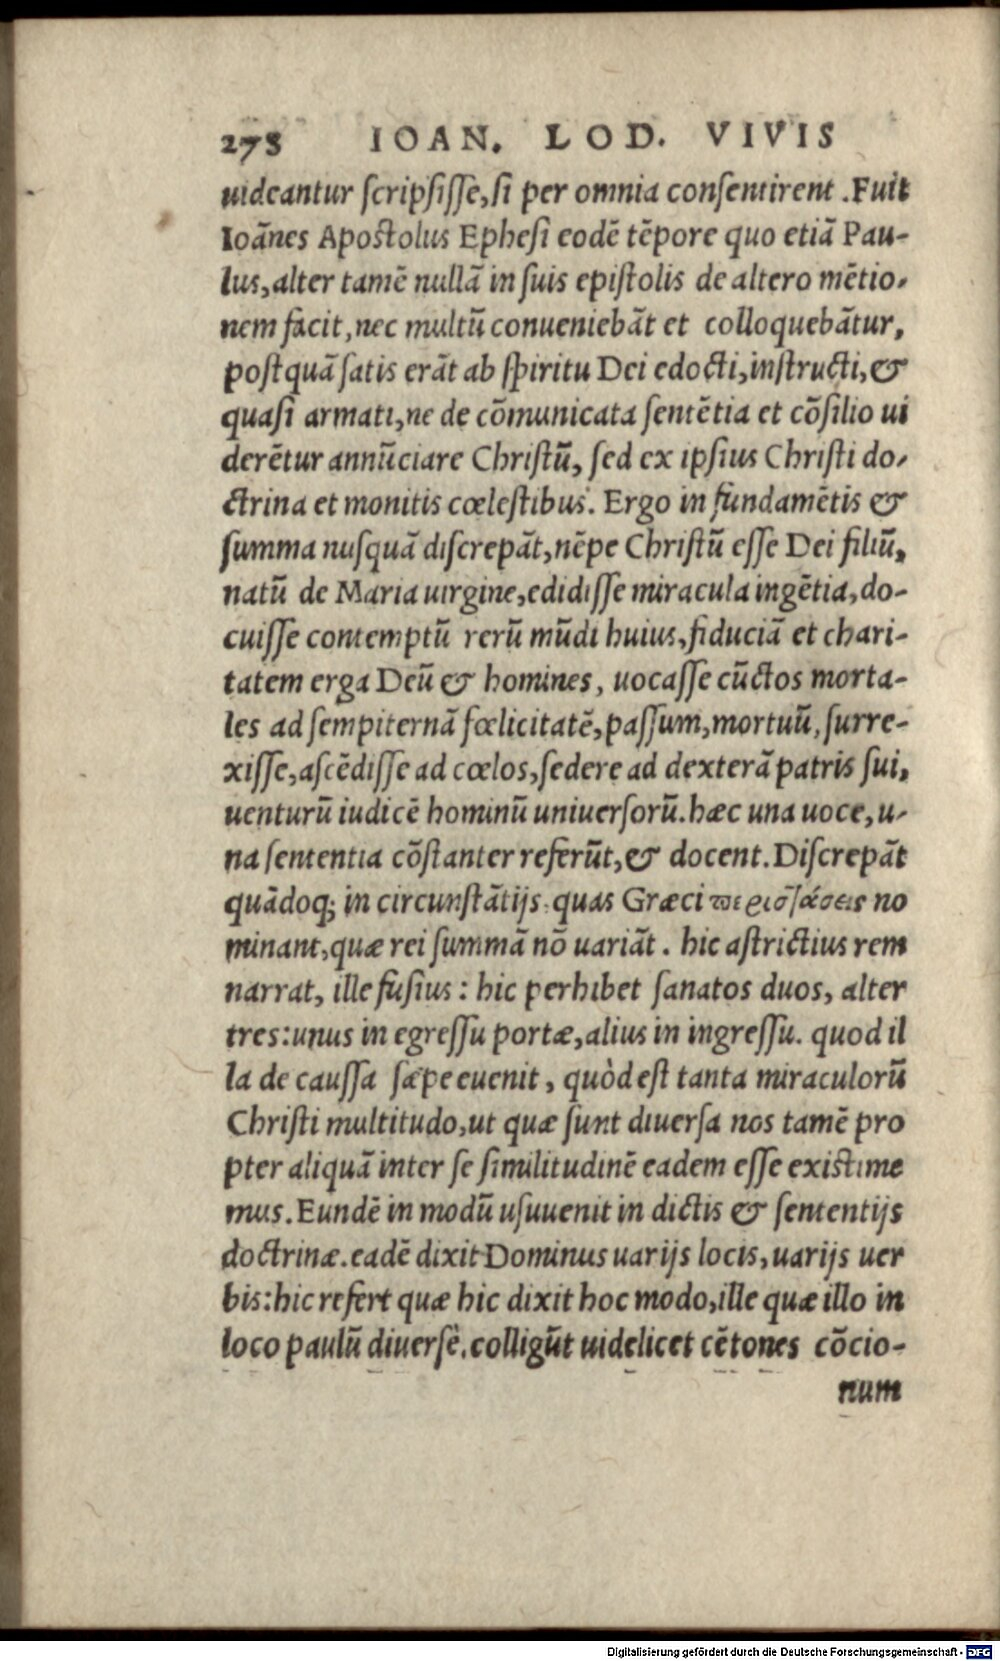 278 IOAN. LOD. VIVIS
uideantur scripsisse, si per omnia consentirent. Fuit
Ioānes Apostolus Ephesi eodē tēpore quo etiā Pau-
lus, alter tamē nullā in suis epistolis de altero mētio-
nem facit, nec multū conueniebāt et colloquebātur,
postquā satis erāt ab spiritu Dei edocti, instructi, &
quasi armati, ne de cōmunicata sentētia et cōsilio ui
derētur annūciare Christū, sed ex ipsius Christi do-
ctrina et monitis cœlestibus. Ergo in fundamētis &
summa nusquā discrepāt, nēpe Christū esse Dei filiū,
natū de Maria uirgine, edidisse miracula ingētia, do-
cuisse contemptū rerū mūdi huius, fiduciā et chari-
tatem erga Deū & homines, uocasse cūctos morta-
les ad sempiternā fœlicitatē, passum, mortuū, surre-
xisse, ascēdisse ad cœlos, sedere ad dexterā patris sui,
uenturū iudicē hominū uniuersorū. hæc una uoce, u-
na sententia cōstanter referūt, & docent. Discrepāt
quādoq; in circunstātijs. quas Græci περιστάσεις no
minant, quæ rei summā nō uariāt. hic astrictius rem
narrat, ille fusius: hic perhibet sanatos duos, alter
tres: unus in egressu portæ, alius in ingressu. quod il
la de caussa sæpe euenit, quòd est tanta miraculorū
Christi multitudo, ut quæ sunt diuersa nos tamē pro
pter aliquā inter se similitudinē eadem esse existime
mus. Eundē in modū usuuenit in dictis & sententijs
doctrinæ. eadē dixit Dominus uarijs locis, uarijs uer
bis: hic refert quæ hic dixit hoc modo, ille quæ illo in
loco paulū diuersè. colligūt uidelicet cētones cōcio-
num
Digitalisierung gefördert durch die Deutsche Forschungsgemeinschaft - DFG